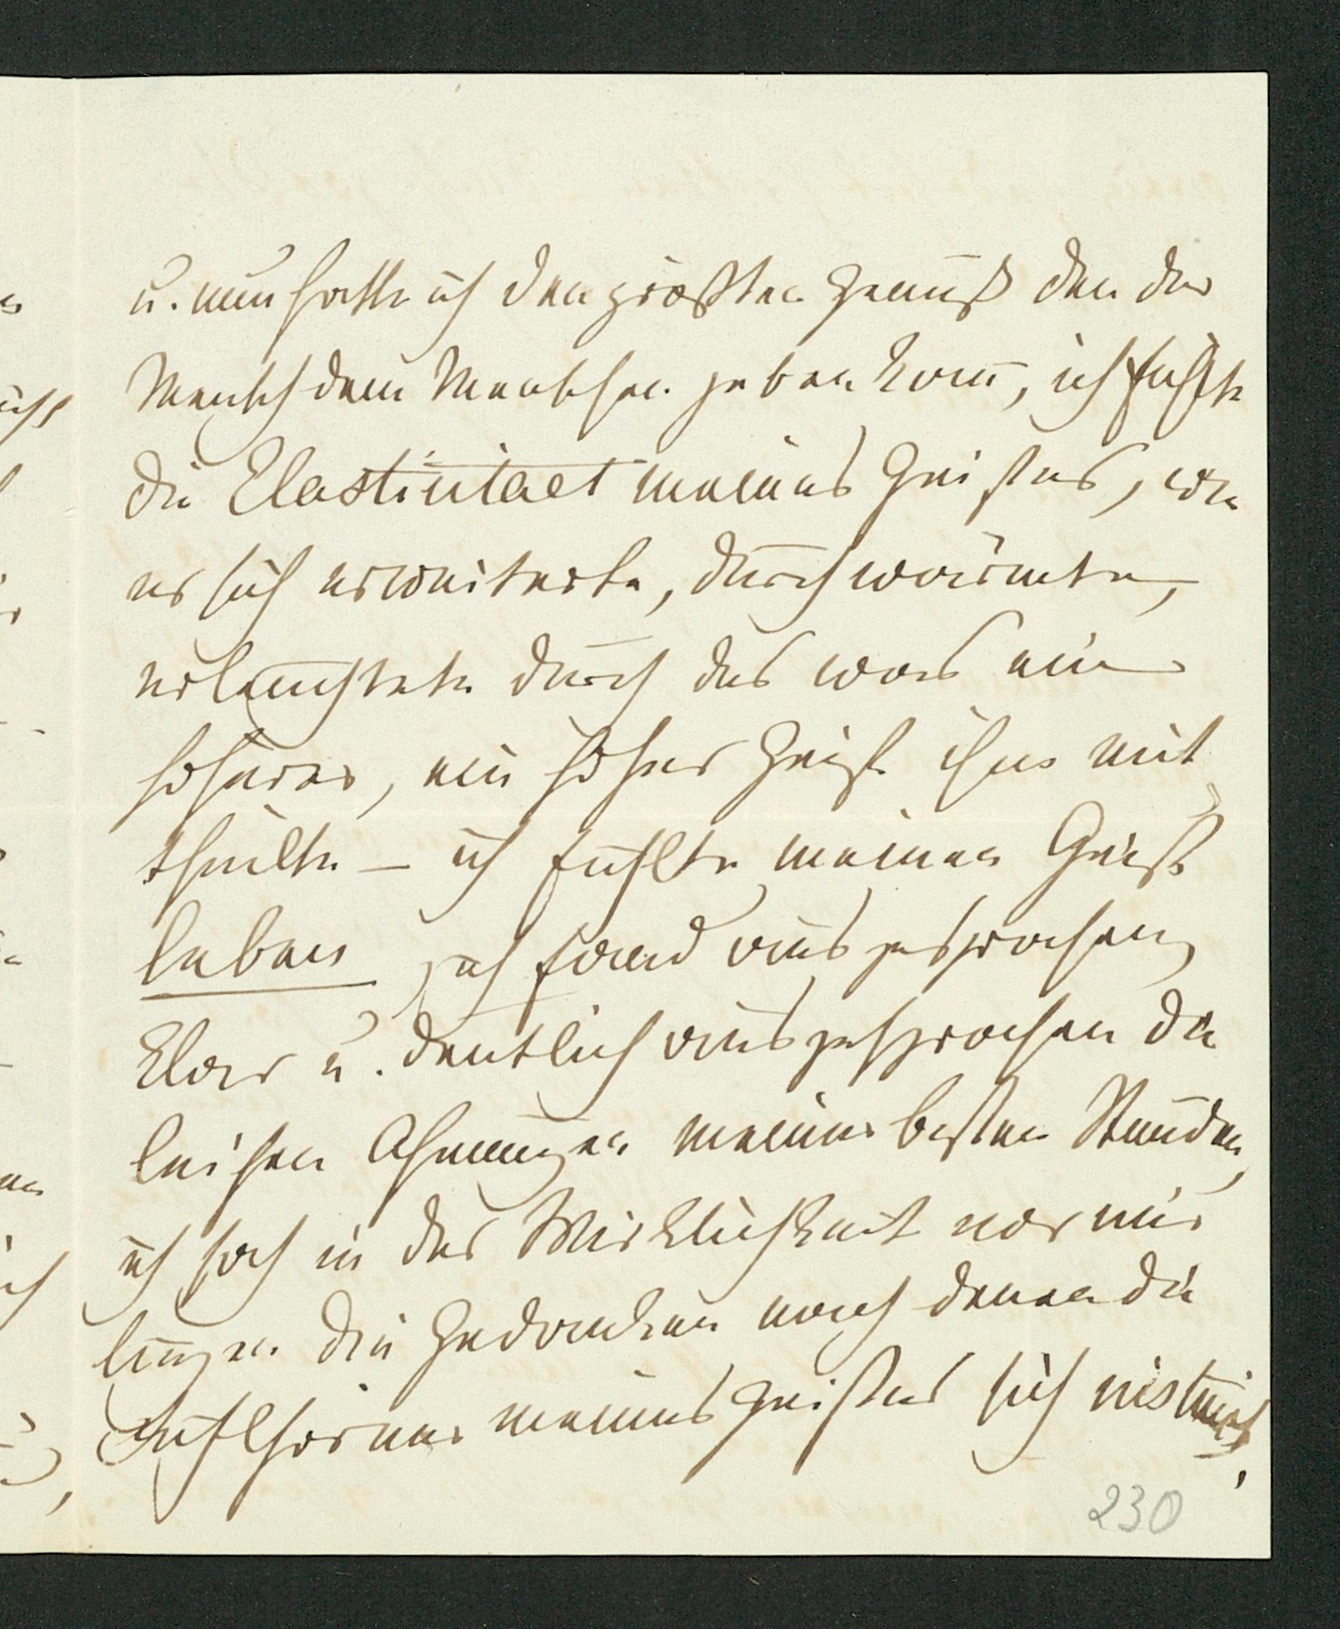 u. nun hatte ich den größten Genuß den der
Mensch dem Menschen geben kann, ich fühlte
die Elasticitaet meines Geistes, wie
er sich erweiterte, durchwärmte,
erleuchtete durch das was ein
höherer, ein hoher Geist ihm mit
theilte – ich fühlte meinen Geist
leben ich fand ausgesprochen,
klar u. deutlich ausgesprochen die
leisen Ahnungen meiner besten Stunden,
ich sah in der Wirklichkeit vor mir
liegen die Gedanken nach denen die
Fühlhörner meines Geistes sich
230